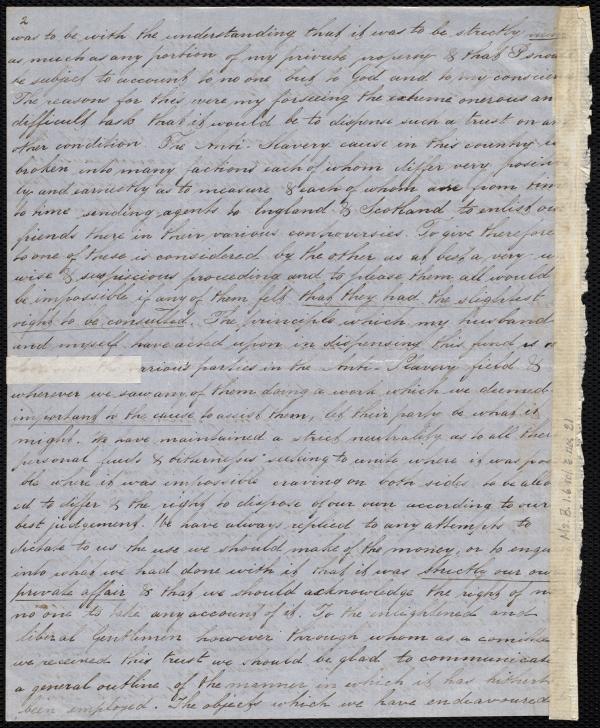 2
was to be with the understanding that it was to be strictly
as much as any portion of my private property & that I
be subject to account to no one but to God and to my
The reasons for this were my forseeing the extreme onerous an
difficult task that it would be to dispense such a trust on
other condition. The Anti-Slavery cause in this country is
broken into many factions each of whom differ very
ly and earnestly as to measure & each of whom are from tim
to time sending agents to England & Scotland to enlist our
friends there in their various controversies. To give therefore
to one of these is considered by the other as at best a very u
wise & suspicious proceeding and to please them all would
be impossible if any of them felt that they had the slightest
right to be consulted. The principle which my husband
and myself have acted upon in dispensing this fund is
the various parties in the Anti-Slavery field &
wherever we saw any of them doing a work which we deemed
important to the cause to assist them, let their party be what it
might. We have maintained a strict neutrality as to all their
personal feuds & bitternesses seeking to unite where it was pos
ble where it was impossible craving on both sides to be
ed to differ & the right to dispose of our own according to our
best judgement. We have always replied to any attempts to
dictate to us the use we should make of the money, or to enqu
into what we had done with it that it was strictly our ow
private affair & that we should acknowledge the right of
no one to take any account of it. To the enlightened and
liberal Gentlemen however through whom as a
we received this trust we should be glad to communicate
a general outline of the manner in which it has hithert
been employed. The objects which we have endeavoured
Ms. B. 1.6 vol. 3 no. 21